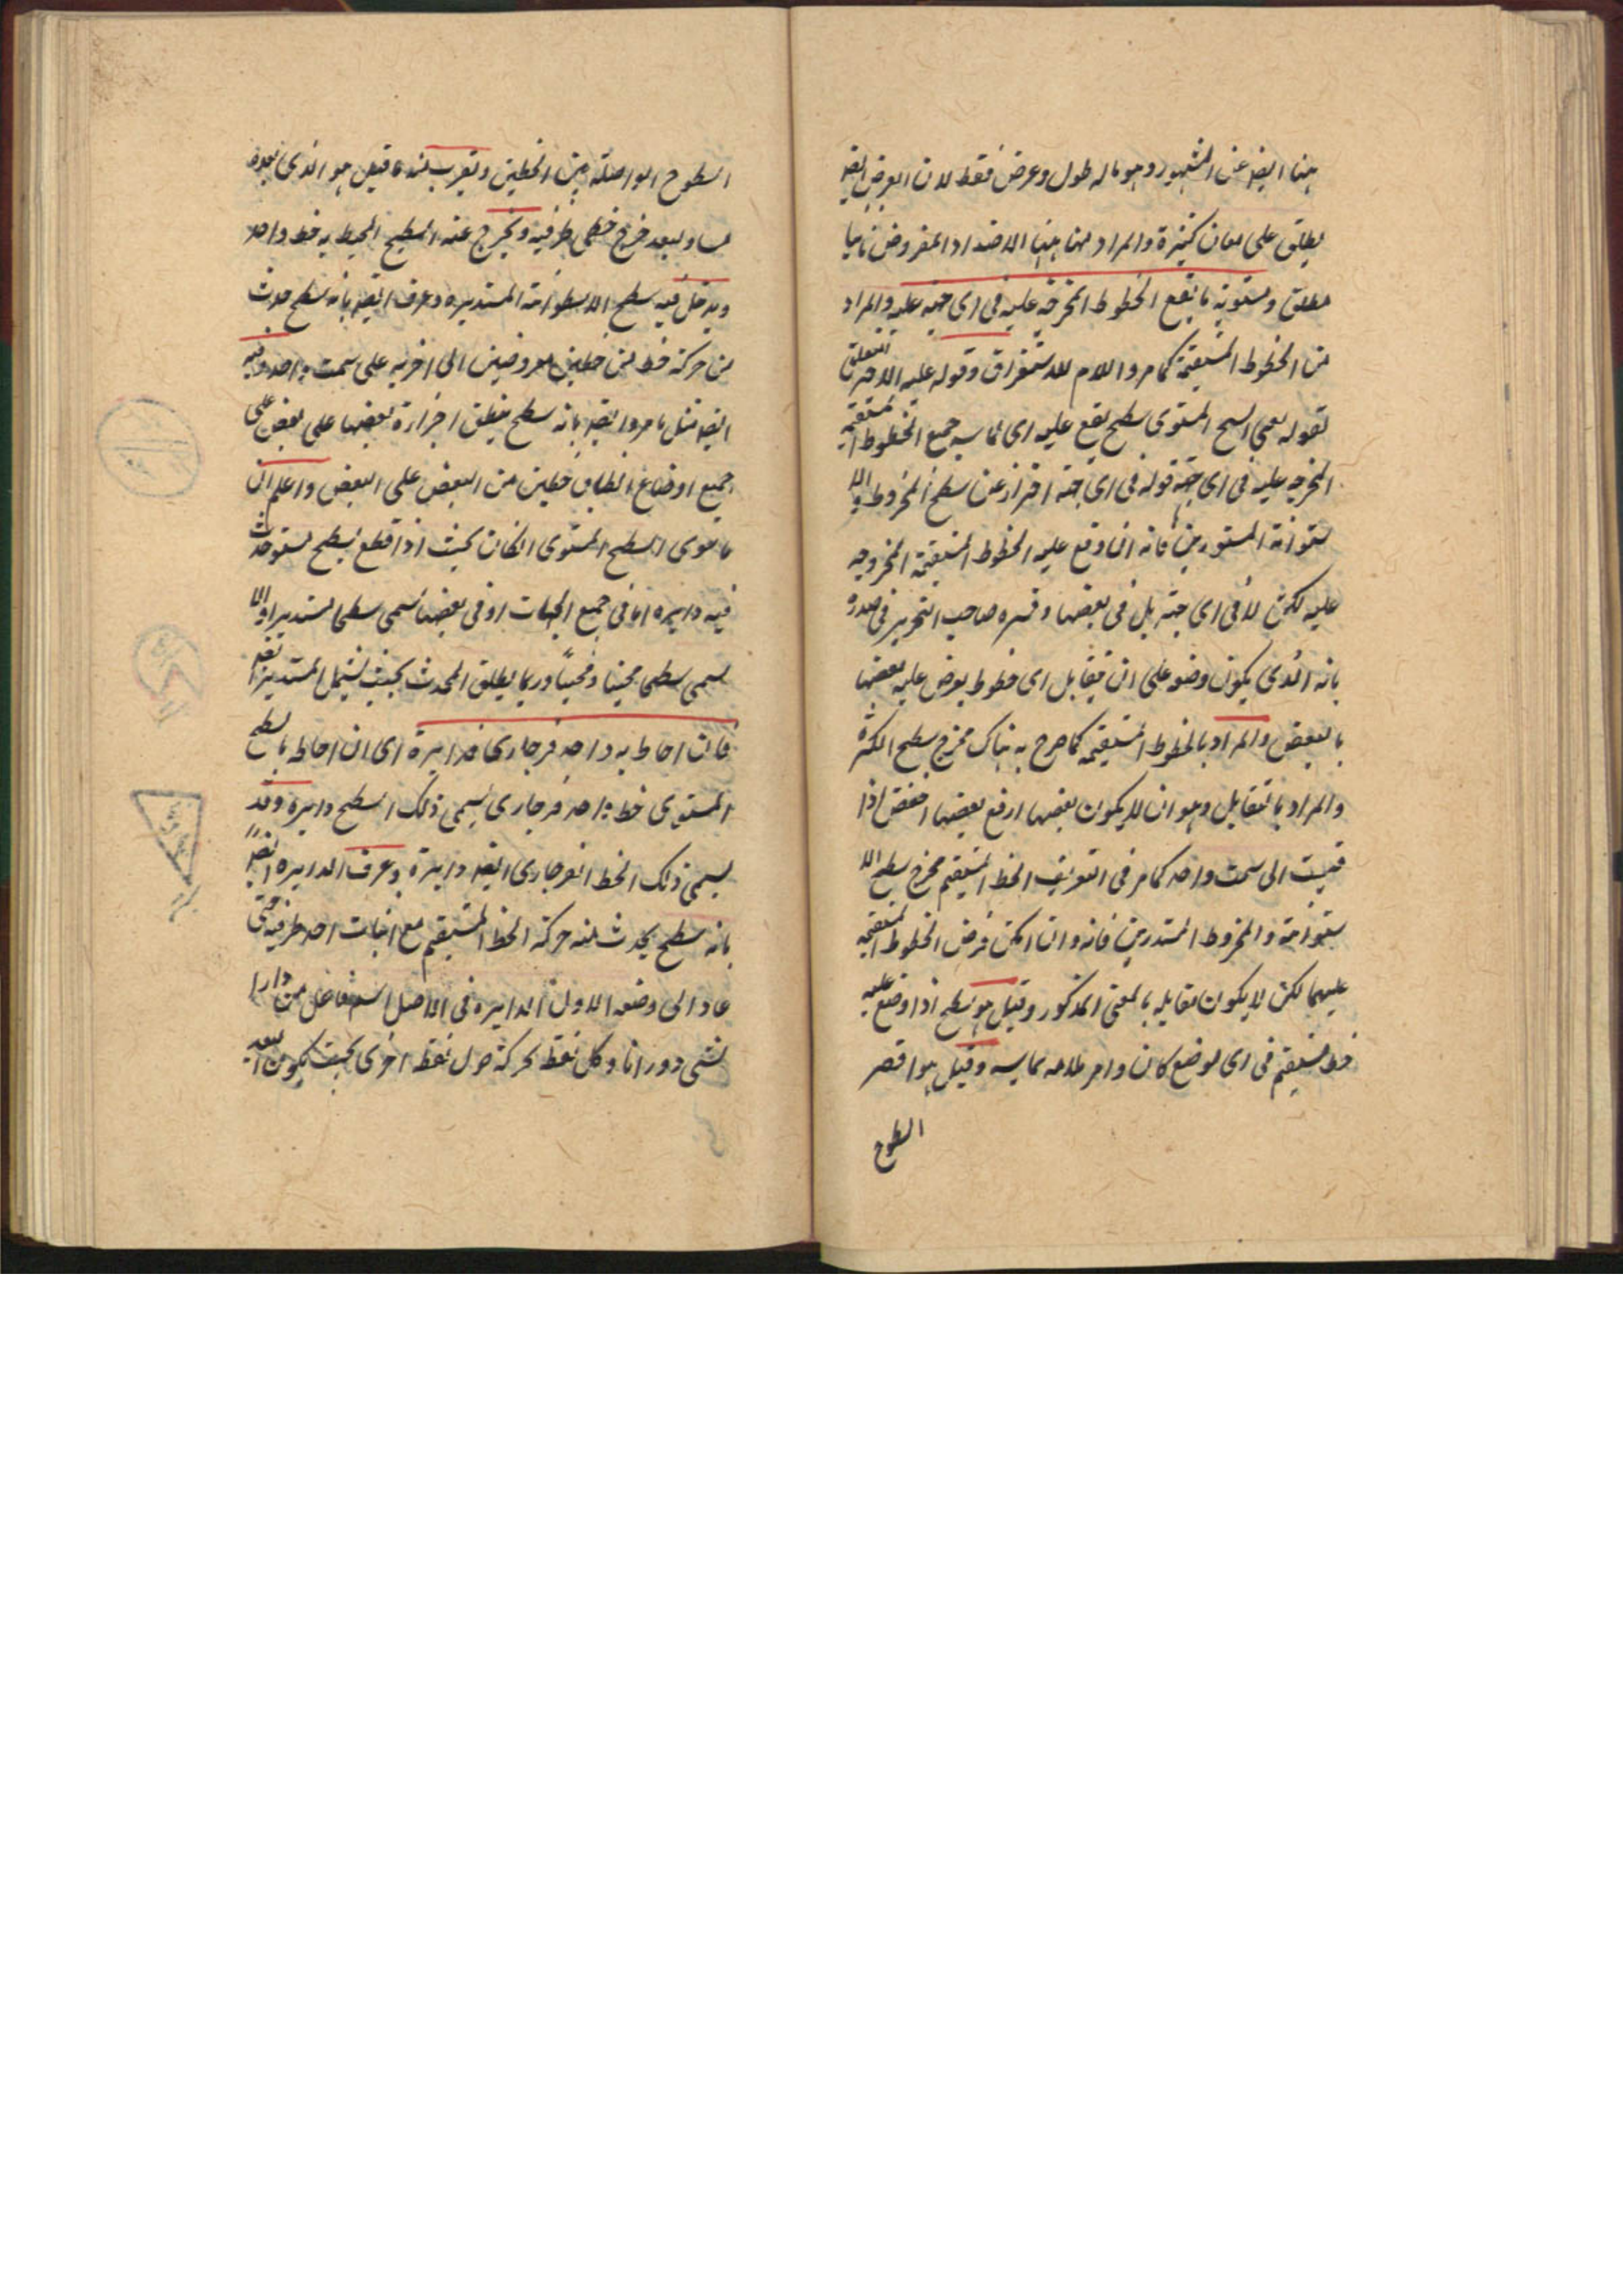 هنا ايضا عن المشهور وهو ما له طول وعرض فقط لان العرض ايضا
يطلق على معان كثيرة والمراد منها هنا الامتداد المفروض ثانيا
مطلقا ومستويه ما يقع الخطوط المخرجة عليه فى اى جهة عليه والمراد
من الخطوط المستقيمة كما مر واللام للاستغراق وقوله عليه الاخير متعلق
بقوله يقع اى السطح المستوى سطح يقع عليه اى يماسه جميع الخطوط المستقيمة
المخرجه عليه فى اى جهة قوله فى اى جهة احتراز عن سطح المخروط والا
ستوانة المستديرين فانه ان وقع عليه الخطوط المستقيمة المخروجه
عليه لكن لا فى اى جهة بل فى بعضها وفسره صاحب التحرير فى صدره
بانه الذى يكون وضعه على ان يتقابل اى خطوط يفرض عليه بعضها
بالبعض والمراد بالخطوط المستقيمه كما صرح به هناك فخرج سطح الكرة
والمراد بالتقابل وهو ان لا يكون بعضها ارفع بعضها اخفض اذا
قيست الى سمت واحد كما مر فى التعريف الخط المستقيم فخرج سطح الا
ستوانة والمخروط المستدرين فانه وان امكن فرض الخطوط المستقيمه
عليهما لكن لا يكون مقابله بالمعنى المذكور وقيل هو سطح اذا وضع عليه
خط مستقيم فى اى موضع كان وامر يماسه وقيل هو اقصر
السطوح
السطوح الواصلة بين الخطين ويقرب منه ما قيل هو الذى بعده
مساو لبعد خرج خطى طرفيه ويخرج عنه السطح المحيط به خط واحد
ويدخل فيه سطح الاسطوانة المستديره وعرف ايضا بانه سطح حدث
من حركة خط من خطين مفروضين الى اخريه على سمت واحد وفيه
ايضا مثل ما مر وايضا بانه سطح ينطبق اجزاءه بعضها على بعض على
جميع اوضاع انطباق خطين من البعض على البعض واعلم ان
ما سوى السطح المستوى ان كان بحيث اذا قطع بسطح مستو حدث
فيه دايره اما فى جميع الجهات او فى بعضها يسمى سطحا مستديرا والا
يسمى سطحا منحنيا ومحنيا وربما يطلق المحدث بحيث يشمل المستدير ايضا
فان احاط به واحد فرجارى فدايرة اى ان احاط بالسطح
المستوى خط واحد فرجارى يسمى ذلك السطح دايرة وقد
يسمى ذلك الخط الفرجارى ايضا دايرة وعرف الدايره ايضا
بانه سطح يحدث منه حركة الخط المستقيم مع اثبات احد طرفيه حتى
عاد الى وضعه الاول الدايره فى الاصل اسم فاعل من دار
لشى دورانا وكل نقطة بحركة حول نقطة اخرى بحيث يكون البعد